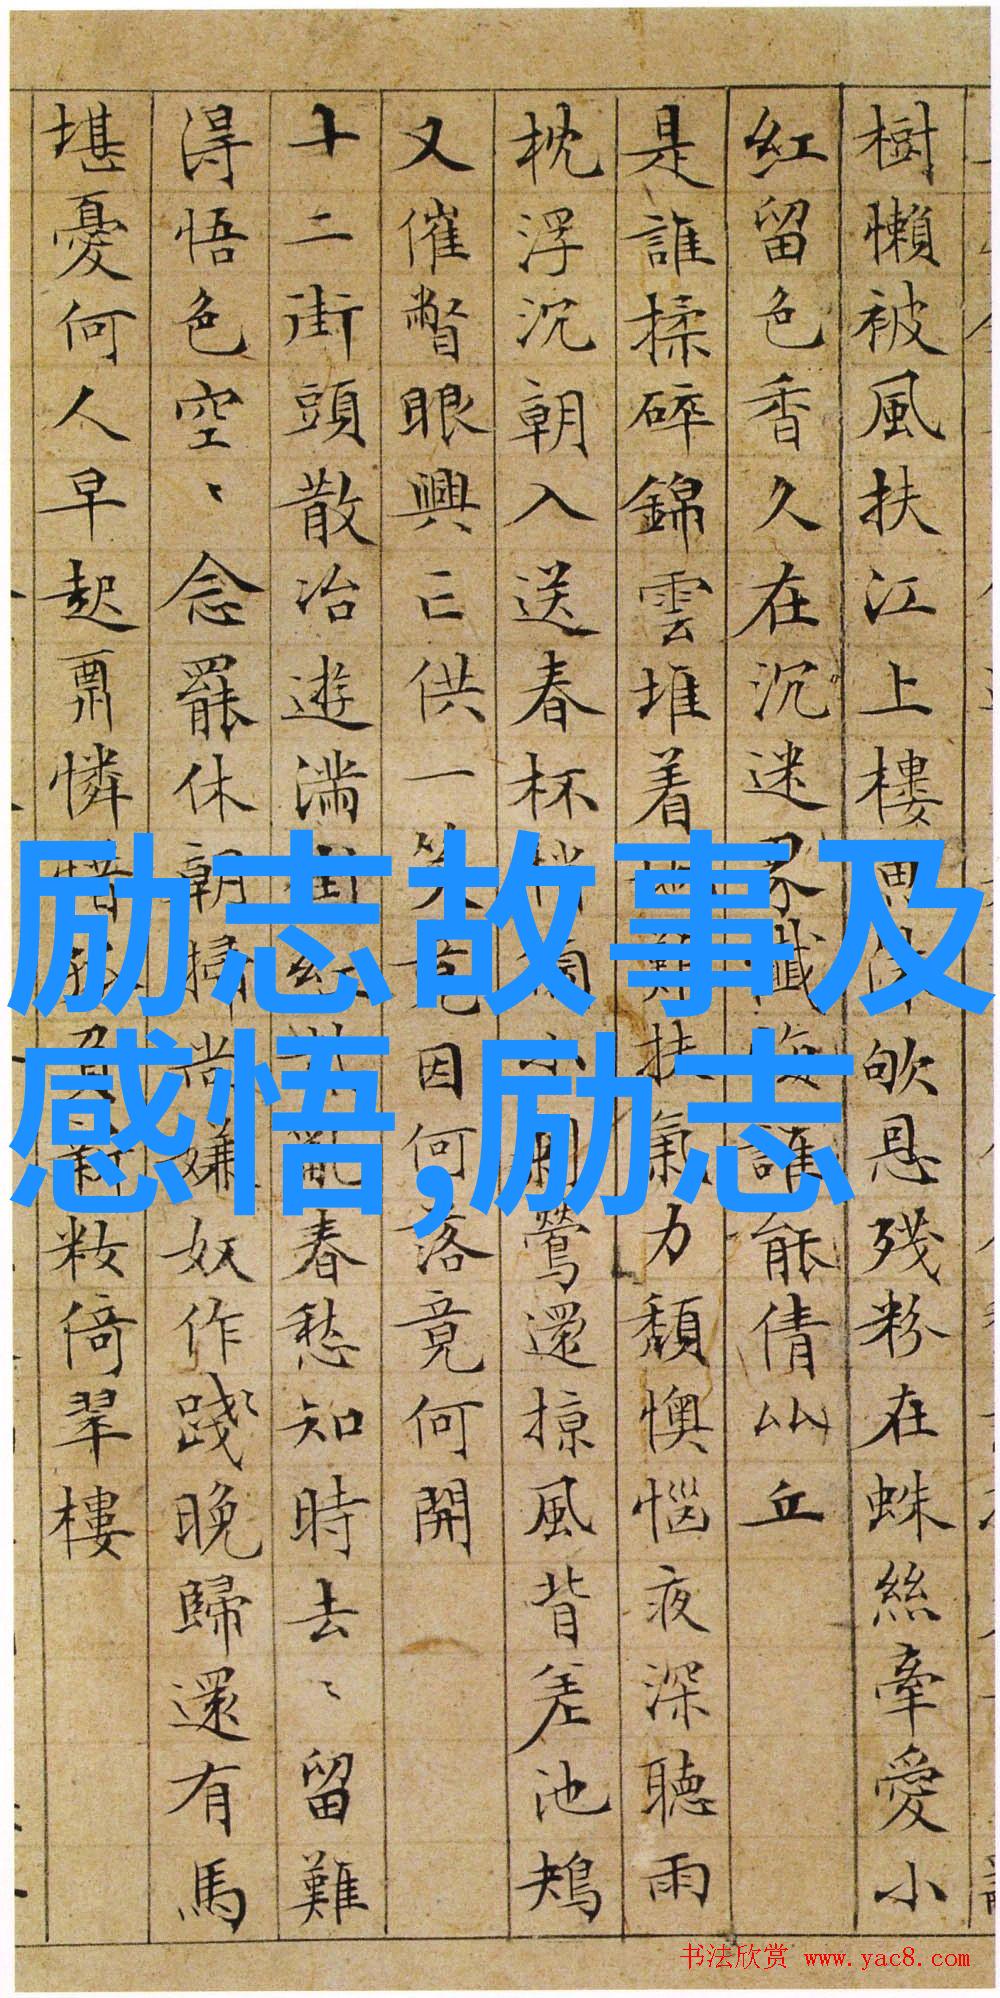 樹懶被風扶江上樓欹恩殘粉在蛛絲牽愛小
紅留色香久在沉迷懺誰能倩山丘
是誰揉碎錦雲堆着難扶氣力頹懊惱夜深聽雨
枕浮沉朝入送春杯小鶯還掠風背差池鴂
又催瞥眼興亡供一笑竟因何落竟何開
十二街頭散冶遊滿街紅亂春愁知時去〻留難
得悟色空〻念罷休朝掃尚嫌奴作踐晚歸還有馬
堪憂何人早起憐惜新妝倚翠樓
励志故事及
感悟,励志
书法欣赏 www.yac8.com